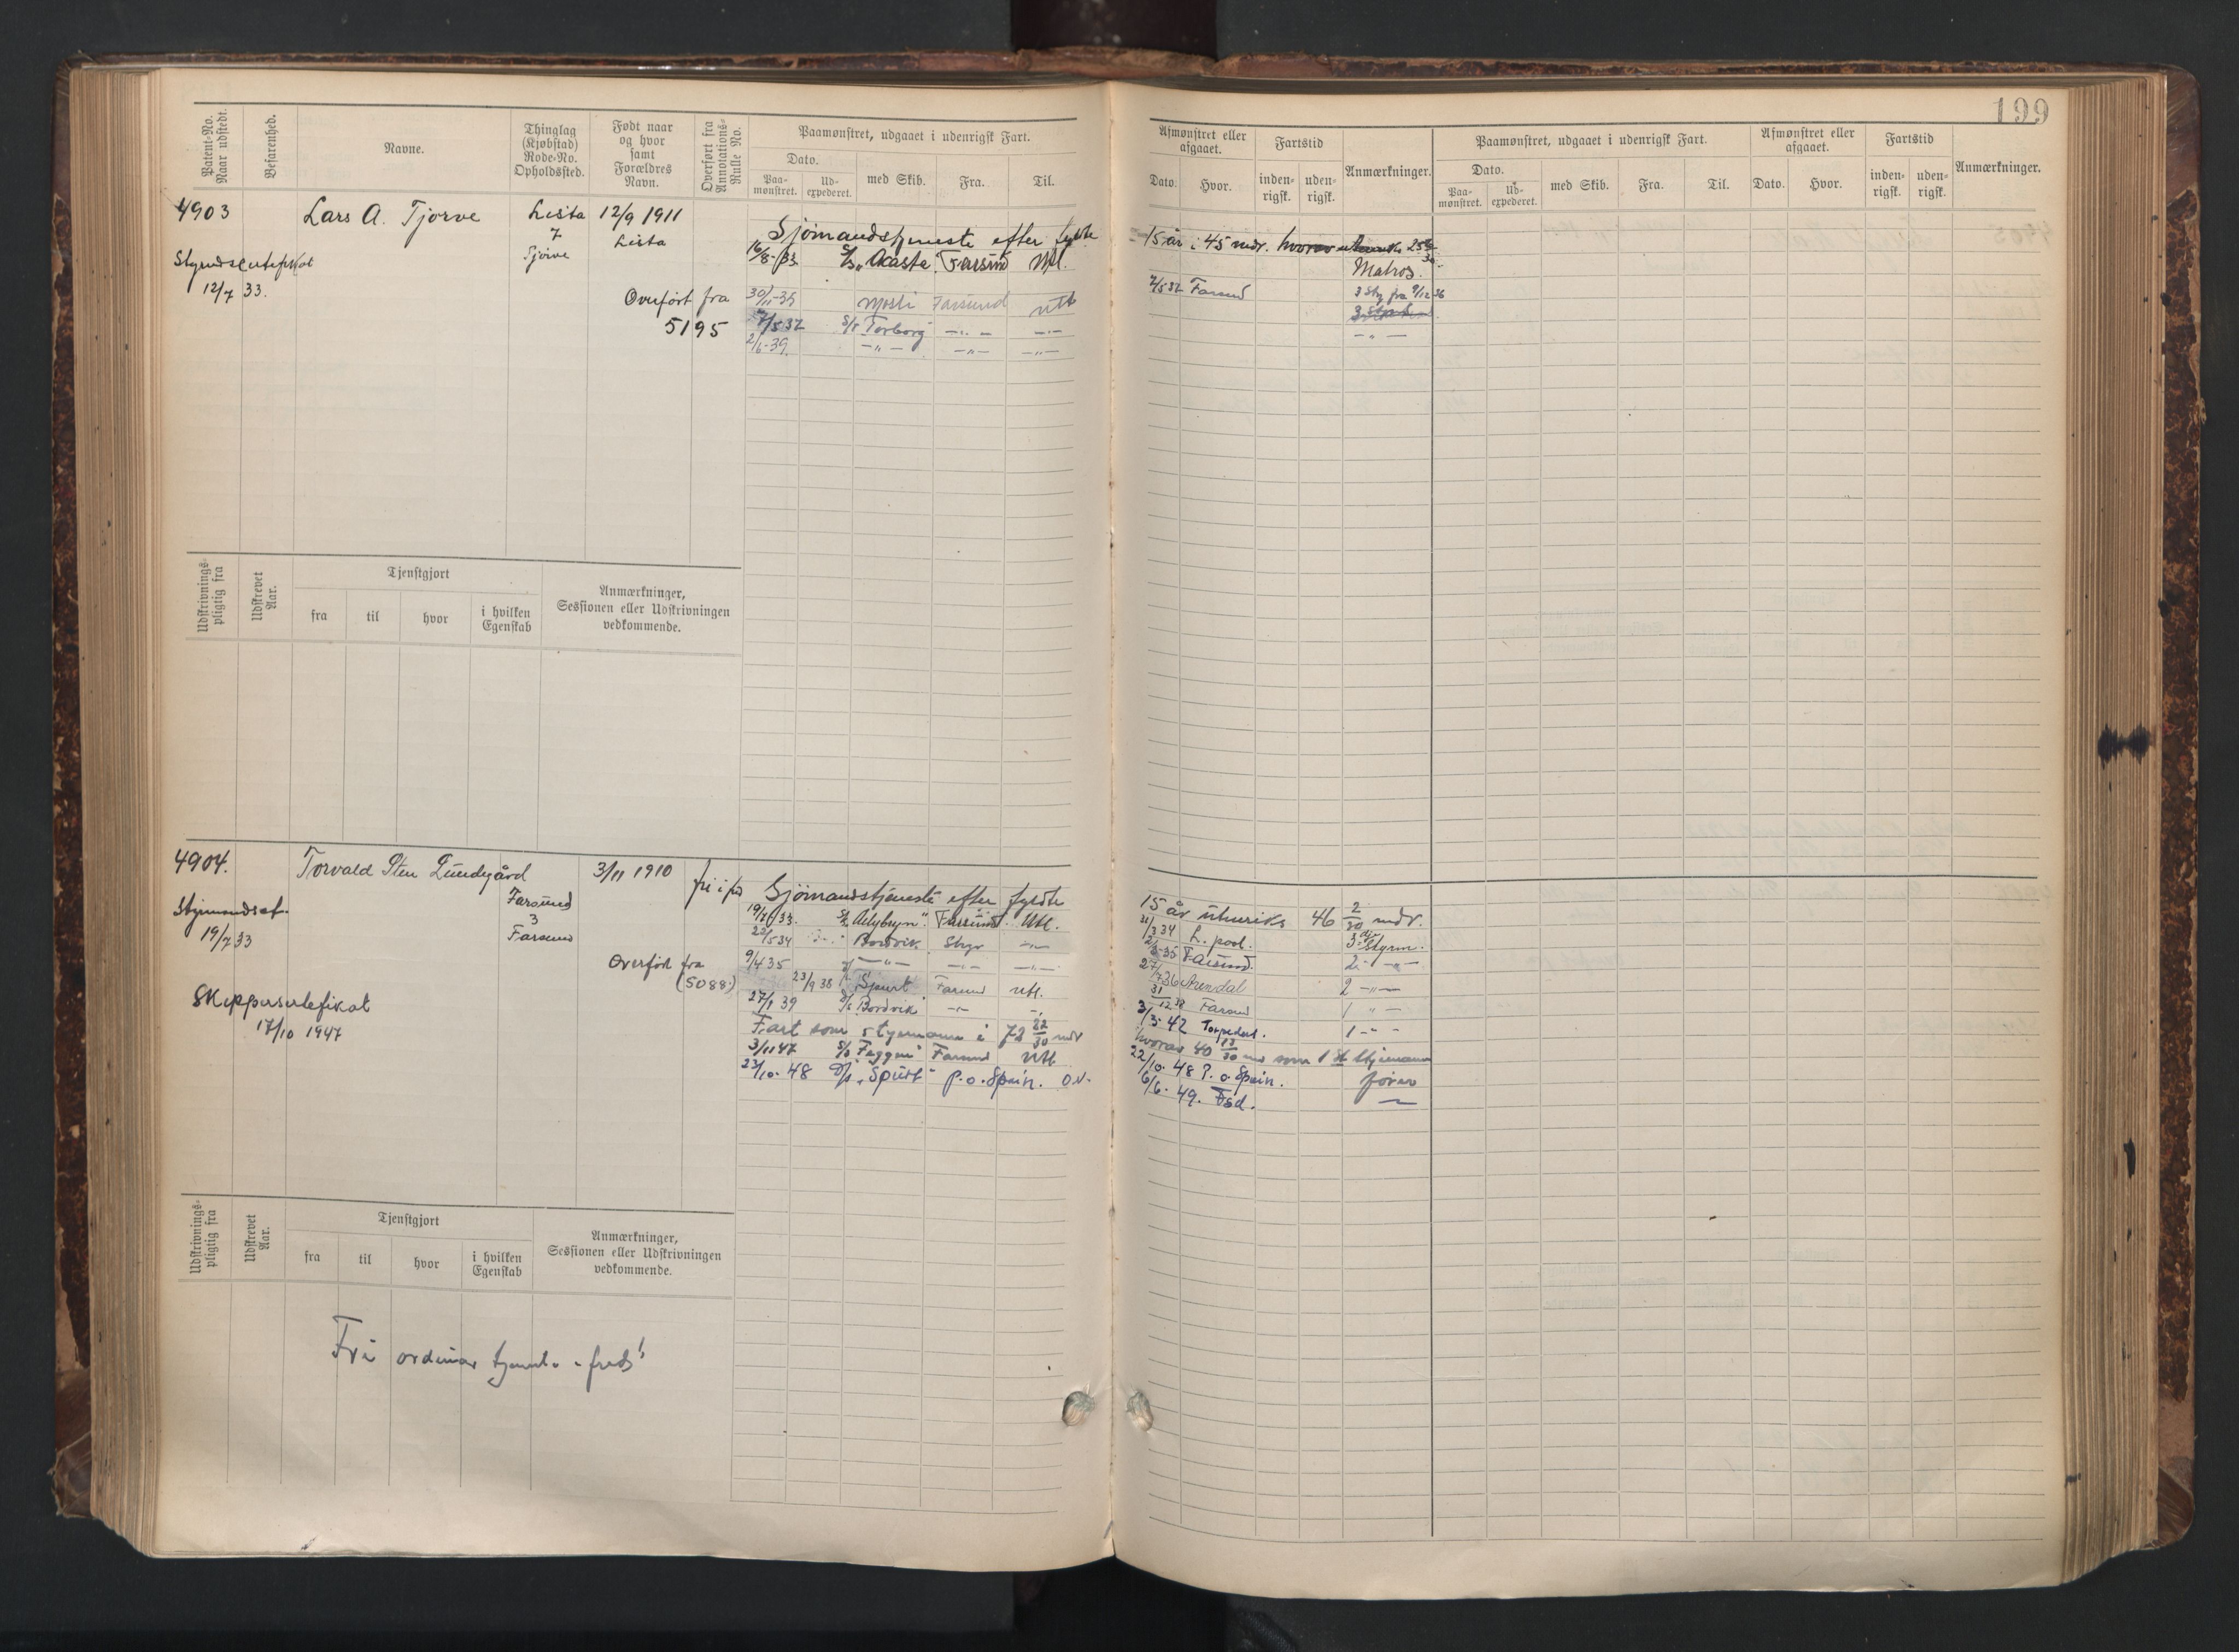 199
Patent-No. Naar udstedt.
Befarenhed.
Navne.
Thinglag (Kjøbstad) Rode-No. Opholdssted.
Født naar og hvor samt Forældres Navn.
Overført fra Annotations-Rulle No.
Paamønstret, udgaaet i udenrigsk Fart.
Dato.
Paa-mønstret.
Ud-expederet.
med Skib.
Fra.
Til.
Afmønstret eller afgaaet.
Dato.
Hvor.
Fartstid
inden-rigsk.
uden-rigsk.
Anmærkninger.
Paamønstret, udgaaet i udenrigsk Fart.
Dato.
Paa-mønstret.
Ud-expederet.
med Skib.
Fra.
Til.
Afmønstret eller afgaaet.
Dato.
Hvor.
Fartstid
inden-rigsk.
uden-rigsk.
Anmærkninger.
4903
Lars A. Tjørve
Lista
7
Tjørve
12/9 1911
Lista
12/7 33.
Overført fra
5195
Sjömandstjeneste efter fyldte
15 år i 45 mdr. hvorav
Matros.
16/8-33 S/s "Akasta" Farsund Utl.
30/11-35 Mosli Farsund utl
7/5 37 Farsund
3 Sty fra 9/12 36
7/5 37 S/s Torborg -"- -"-
2/6-39. -"- -"- -"-
-"-
Udskrivnings-pligtig fra
Udskrevet Aar.
Tjenstgjort
fra
til
hvor
i hvilken Egenskab
Anmærkninger, Sessionen eller Udskrivningen vedkommende.
4904.
Torvald Sten Lundegård
Farsund
3
Farsund
3/11 1910
19/7 33
Overført fra
(5088)
Skippersertefikat
17/10 1947
Sjömandstjeneste efter fyldte
15 år utenriks 46 2/30 mdr.
Farsund Utl.
31/3 34 L. pool. 3die Styrm.
22/5 34 Bordvik Styr -"-
Farsund. 2. -"-
9/4 35 -"- -"- -"-
27/7 36 Arendal 2 -"-
23/9 38 Spurt Farsund Utl.
31/12 38 Farsund 1 "-
27/1 39 D/s Bordvik -"- -"-
3/3 42 Torpedert. 1 -"-
Fart som styrmann i 72 22/30 mdr
hvorav 40 13/30 md som 1 st Styrmann
3/11 47 S/s "Faggen" Farsund Utl
22/10. 48 P. o. Spain. fører
23/10. 48 D/s "Spurt" P. o. Spain.
6/6. 49. Fsd.
Udskrivnings-pligtig fra
Udskrevet Aar.
Tjenstgjort
fra
til
hvor
i hvilken Egenskab
Anmærkninger, Sessionen eller Udskrivningen vedkommende.
Fri ordinær